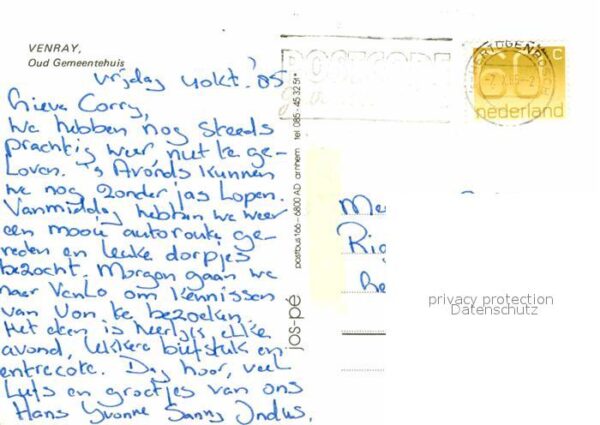 VENRAY,
Oud Gemeentehuis
vrijdag 4 okt. '85
Lieve Corry,
We hebben nog steeds
prachtig weer niet te ge-
loven. 's Avonds kunnen
we nog zonder jas lopen.
Vanmiddag hebben we weer
een mooi autoroute ge-
reden en leuke dorpjes
bezocht. Morgen gaan we
naar Venlo om kennissen
van Von te bezoeken.
Het eten is heerlijk elke
avond, lekkere biefstuk en
entrecote. Dag hoor, veel
liefs en groetjes van ons
Hans Yvonne Sanny Indus.
jos-pé
postbus 166 – 6800 AD arnhem tel 085 - 45 32 51*
POSTCODE
60 C
nederland
Me
Rig
he
privacy protection
Datenschutz